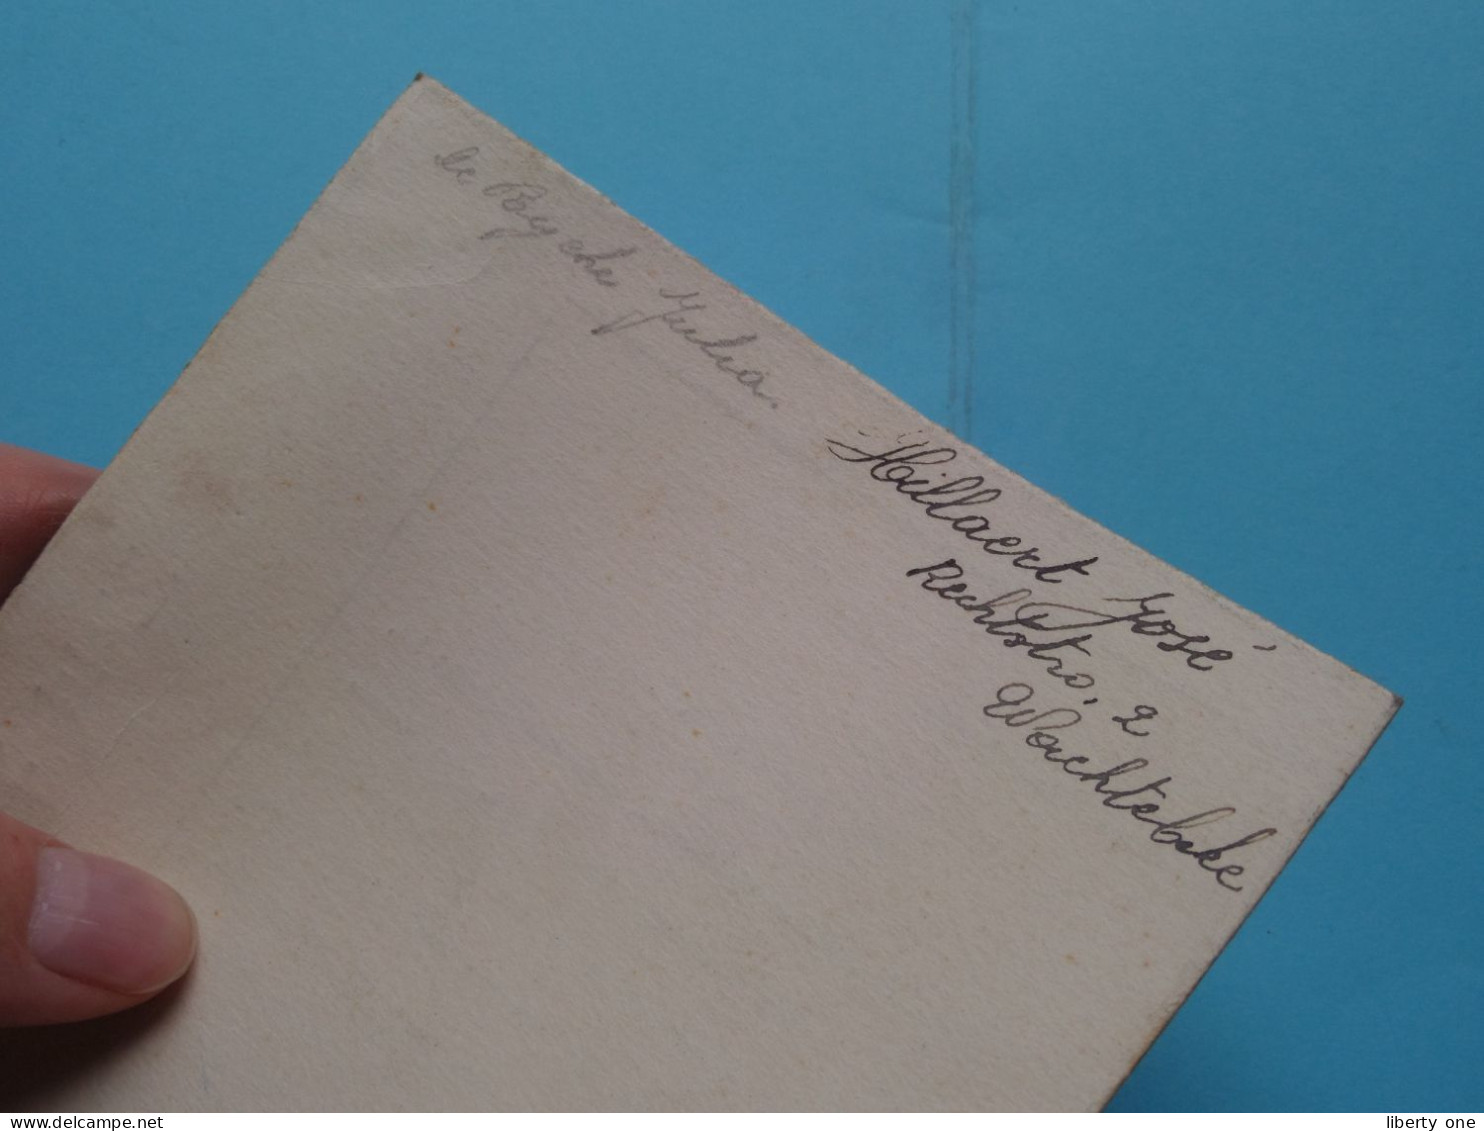 de Rycke Julia.
Hillaert José
Rechtstro, 2
Wachtebeke
www.delcampe.net
liberty one